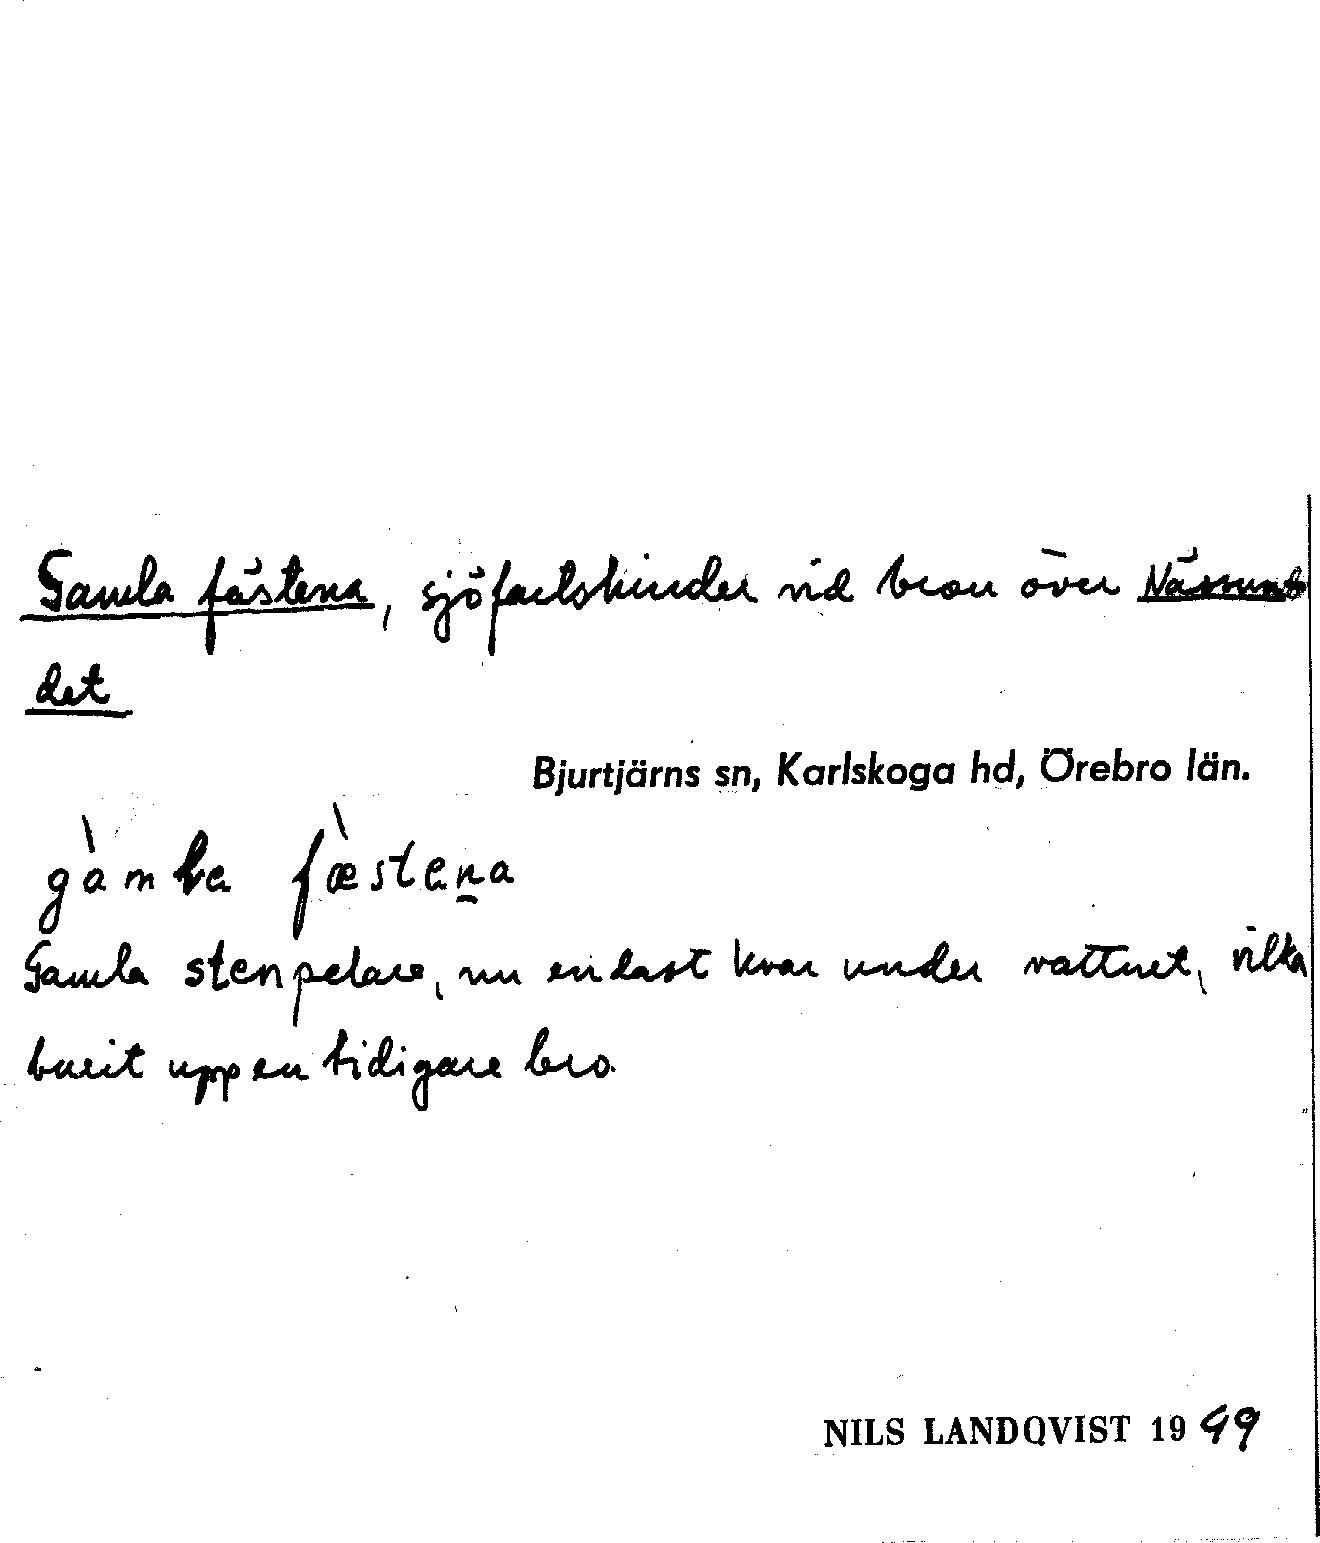 Gamla fästena, sjöfartshinder vid bron över Nässund
det
Bjurtjärns sn, Karlskoga hd, Örebro län.
fæstena
Gamla stenpelare, nu endast kvar under vattnet, vilka
burit upp en tidigare bro.
NILS LANDQVIST 19